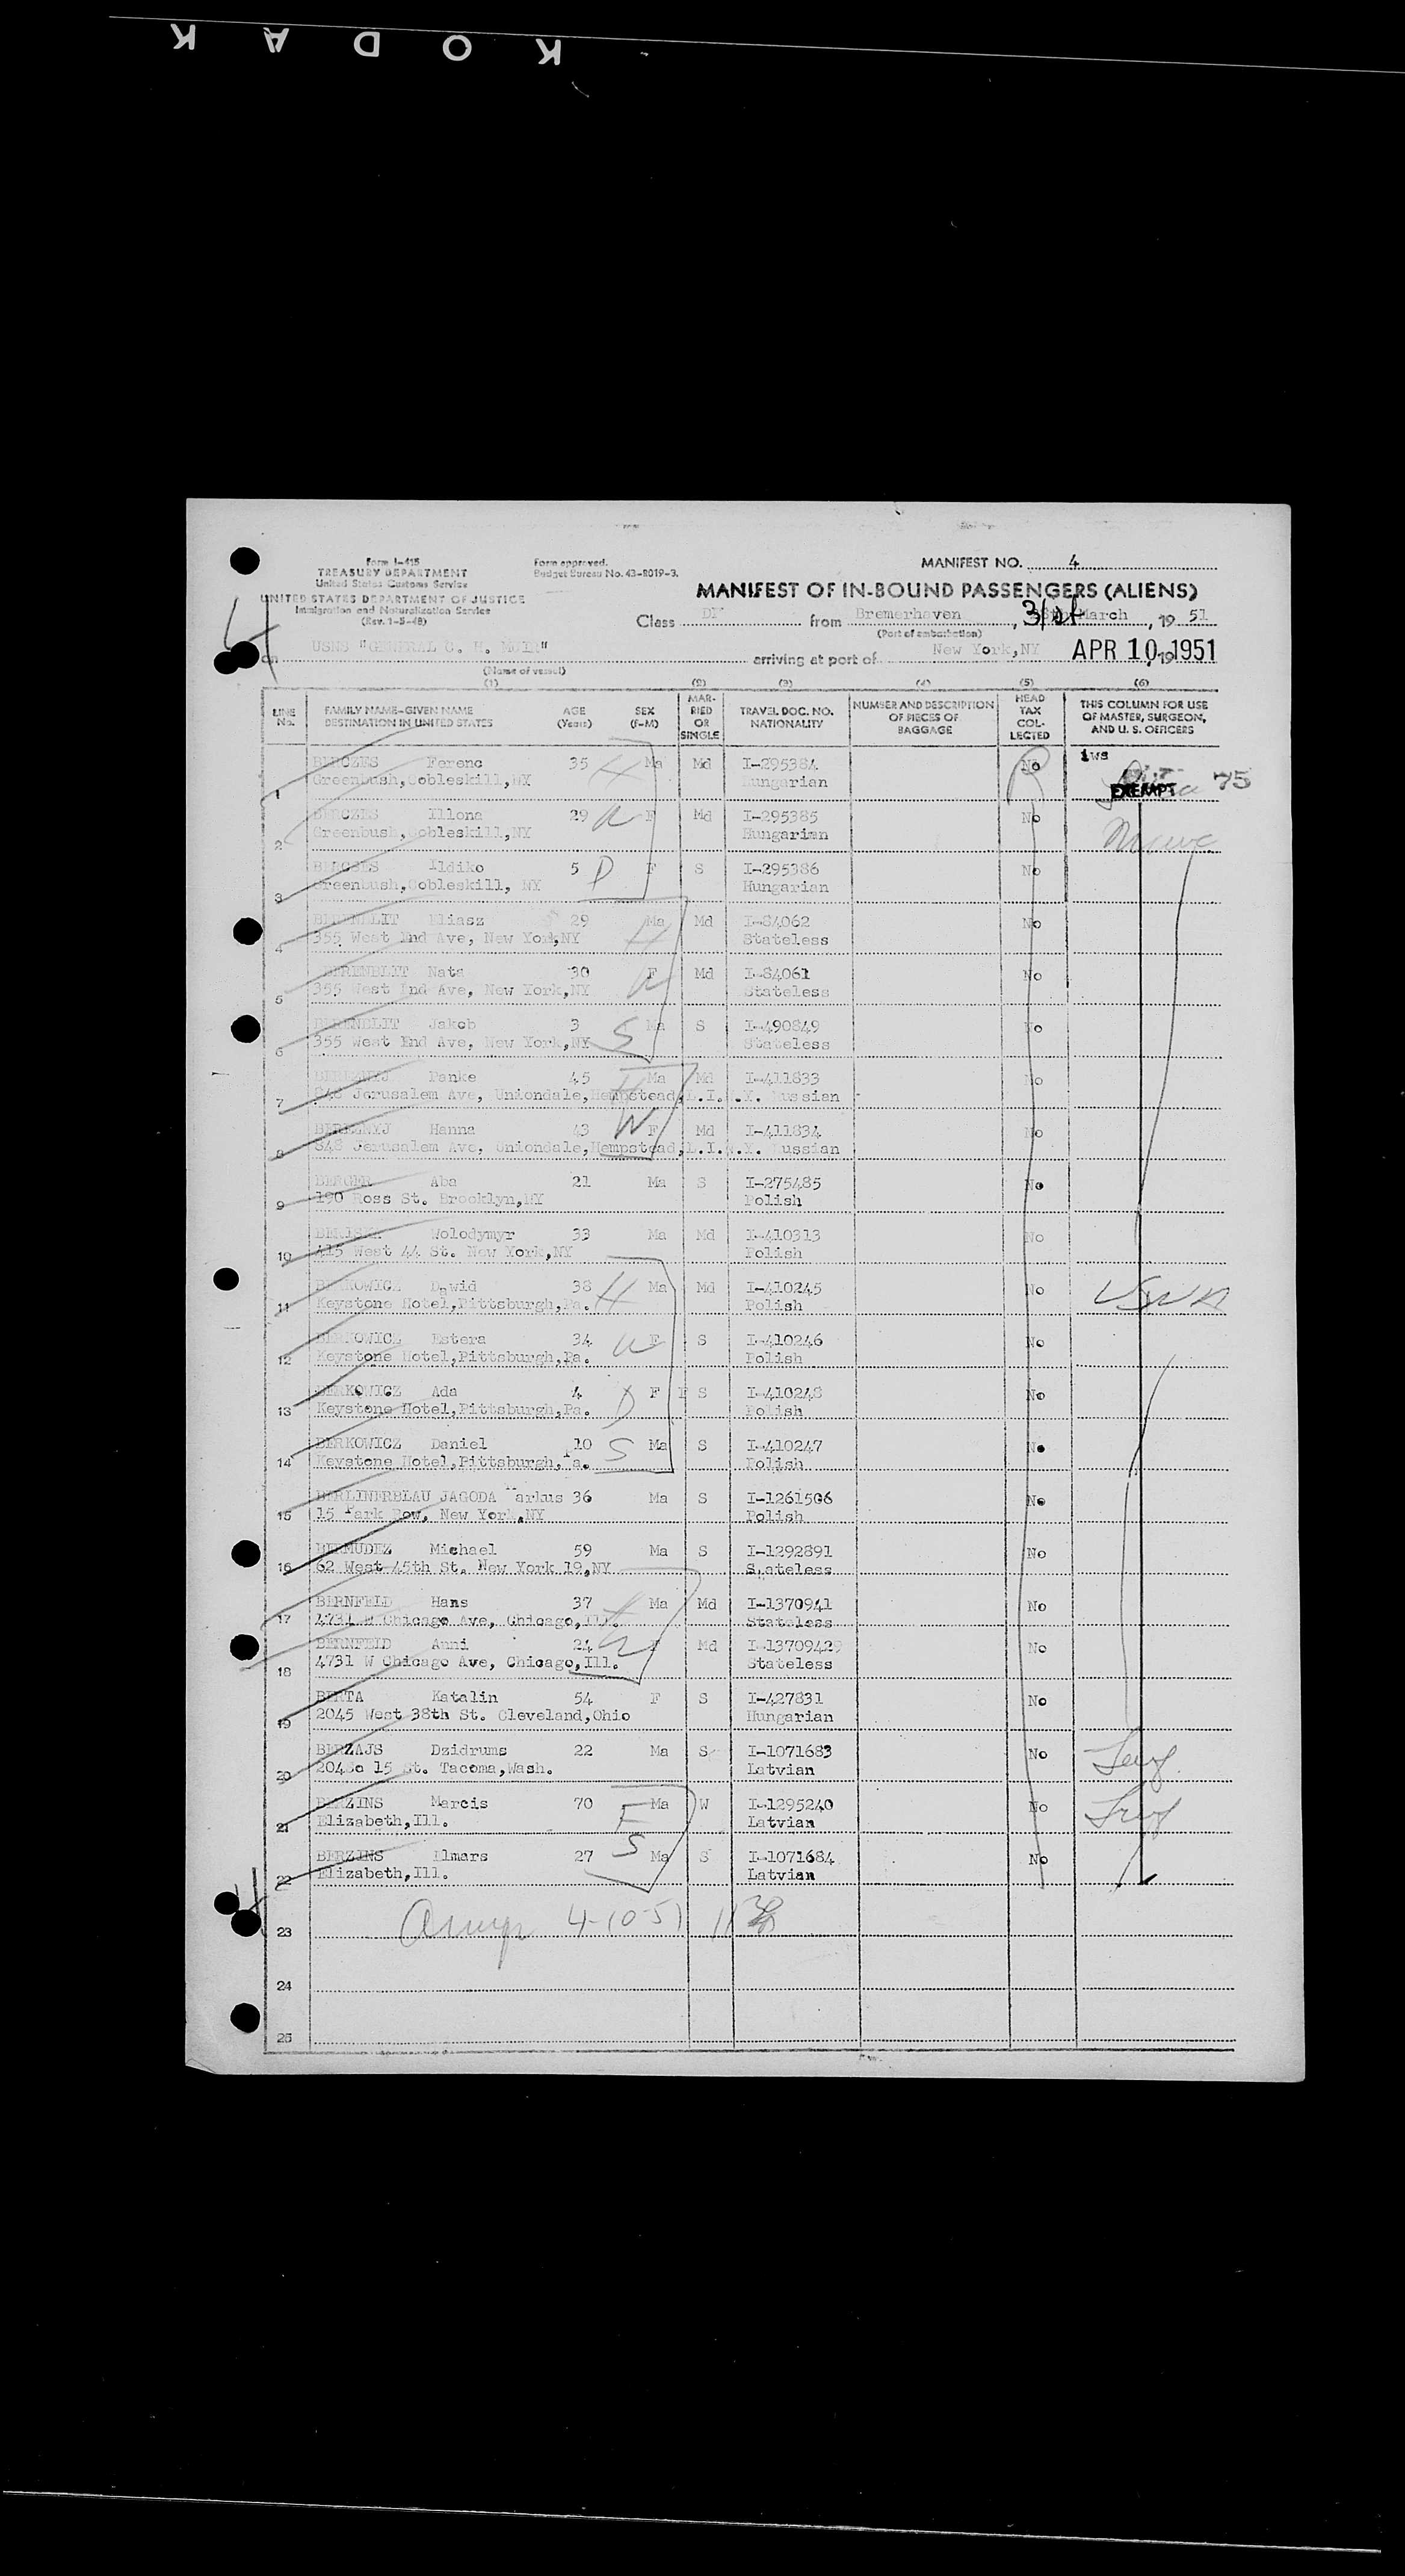 KODAK
Form I-415
TREASURY DEPARTMENT
United States Customs Service
UNITED STATES DEPARTMENT OF JUSTICE
Immigration and Naturalization Service
(Rev. 1-5-48)
Form approved.
Budget Bureau No. 43-R019-3.
MANIFEST NO. 4
MANIFEST OF IN-BOUND PASSENGERS (ALIENS)
Class DP from Bremerhaven, 31st March, 19 51
(Port of embarkation)
on USNS "GENERAL C. H. MUIR" arriving at port of New York,NY APR 10 1951, 19
(Name of vessel)
(1) (2) (3) (4) (5) (6)
LINE No. FAMILY NAME-GIVEN NAME DESTINATION IN UNITED STATES AGE (Years) SEX (F-M) MARRIED OR SINGLE TRAVEL DOC. NO. NATIONALITY NUMBER AND DESCRIPTION OF PIECES OF BAGGAGE HEAD TAX COLLECTED THIS COLUMN FOR USE OF MASTER, SURGEON, AND U. S. OFFICERS
BERCZES Ferenc 35 H Ma Md I-295384 No iws
1 Greenbush,Cobleskill,NY Hungarian EXEMPT 75
BERCZES Illona 29 W F Md I-295385 No
2 Greenbush,Cobleskill,NY Hungarian
BERCSES Ildiko 5 D F S I-295386 No
3 Greenbush,Cobleskill, NY Hungarian
BERENBLIT Eliasz 29 H Ma Md I-84062 No
4 355 West End Ave, New York,NY Stateless
BERENBLIT Nata 30 W F Md I-84061 No
5 355 West End Ave, New York,NY Stateless
BERENBLIT Jakob 3 S Ma S I-490849 No
6 355 West End Ave, New York,NY Stateless
BEREZNYJ Panko 45 H Ma Md I-411833 No
7 848 Jerusalem Ave, Uniondale,Hempstead,L.I.N.Y. Russian
BEREZNYJ Hanna 43 W F Md I-411834 No
8 848 Jerusalem Ave, Uniondale,Hempstead,L.I.N.Y. Russian
BERGER Aba 21 Ma S I-275485 No
9 190 Ross St. Brooklyn,NY Polish
Wolodymyr 33 Ma Md I-410313 No
10 415 West 44 St. New York,NY Polish
BERKOWICZ Dawid 38 H Ma Md I-410245 No
11 Keystone Hotel,Pittsburgh,Pa. Polish
BERKOWICZ Estera 34 W F S I-410246 No
12 Keystone Hotel,Pittsburgh,Pa. Polish
BERKOWICZ Ada 4 D F S I-410248 No
13 Keystone Hotel,Pittsburgh,Pa. Polish
BERKOWICZ Daniel 10 S Ma S I-410247 No
14 Keystone Hotel,Pittsburgh,Pa. Polish
BERLINERBLAU JAGODA Markus 36 Ma S I-1261506 No
15 15 Park Row, New York,NY Polish
BERMUDEZ Michael 59 Ma S I-1292891 No
16 62 West 45th St. New York 19,NY Stateless
BERNFELD Hans 37 H Ma Md I-1370941 No
17 4731 W Chicago Ave, Chicago,Ill. Stateless
BERNFEID Anni 24 W F Md I-13709429 No
18 4731 W Chicago Ave, Chicago,Ill. Stateless
BERTA Katalin 54 F S I-427831 No
19 2045 West 38th St. Cleveland,Ohio Hungarian
BERZAJS Dzidrums 22 Ma S I-1071683 No
20 204So 15 St. Tacoma,Wash. Latvian
BERZINS Marcis 70 F Ma W I-1295240 No
21 Elizabeth,Ill. Latvian
BERZINS Ilmars 27 S Ma S I-1071684 No
22 Elizabeth,Ill. Latvian
23 4-10-51
24
25